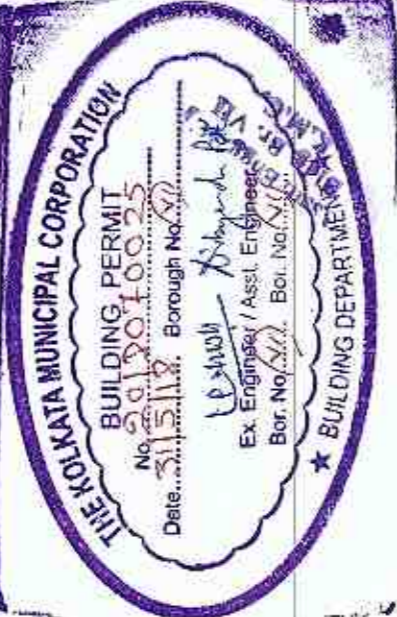 THE KOLKATA MUNICIPAL CORPORATION
BUILDING PERMIT
No. 2018070025
Date 31/5/18 Borough No. VII
Ex. Engineer / Asst. Engineer
Bor. No. VII Bor. No. VII
★ BUILDING DEPARTMENT ★